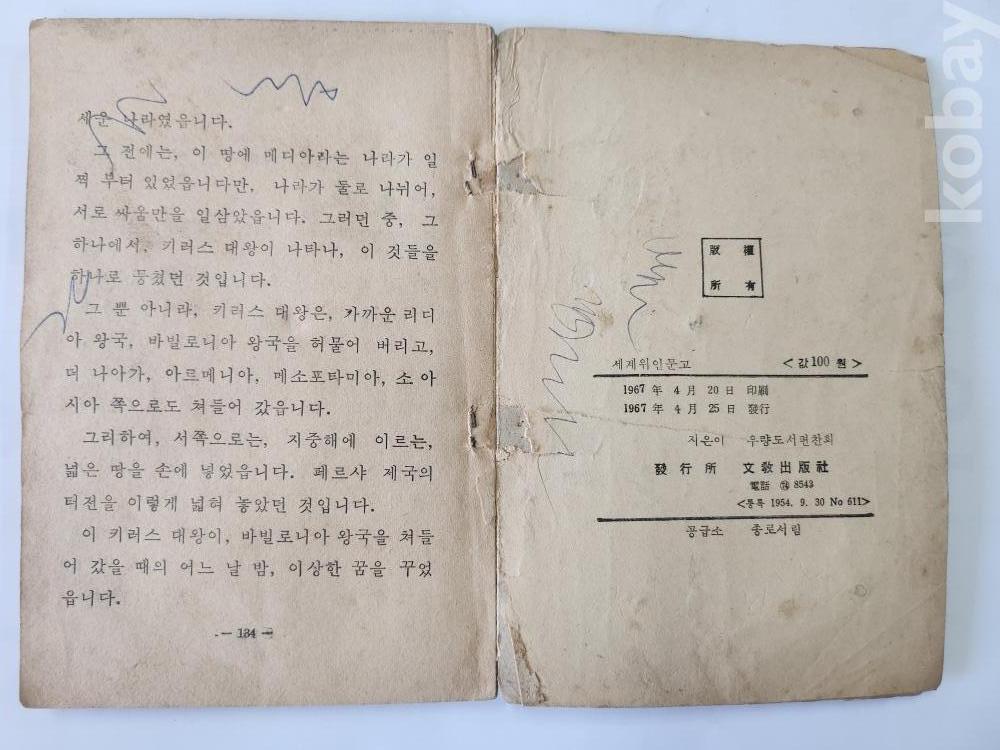 세운 나라였읍니다.
그 전에는, 이 땅에 메디아라는 나라가 일
찍 부터 있었읍니다만, 나라가 둘로 나뉘어,
서로 싸움만을 일삼았읍니다. 그러던 중, 그
하나에서, 키러스 대왕이 나타나, 이 것들을
하나로 뭉쳤던 것입니다.
그 뿐 아니라, 키러스 대왕은, 가까운 리디
아 왕국, 바빌로니아 왕국을 허물어 버리고,
더 나아가, 아르메니아, 메소포타미아, 소 아
시아 쪽으로도 쳐들어 갔읍니다.
그리하여, 서쪽으로는, 지중해에 이르는,
넓은 땅을 손에 넣었읍니다. 페르샤 제국의
터전을 이렇게 넓혀 놓았던 것입니다.
이 키러스 대왕이, 바빌로니아 왕국을 쳐들
어 갔을 때의 어느 날 밤, 이상한 꿈을 꾸었
읍니다.
— 134 —
版權
所有
세계위인문고 <값 100 원>
1967 年 4 月 20 日 印刷
1967 年 4 月 25 日 發行
지은이 우량도서편찬회
發行所 文敎出版社
電話 8543
<등록 1954. 9. 30 No 611>
공급소 종로서림
kobay